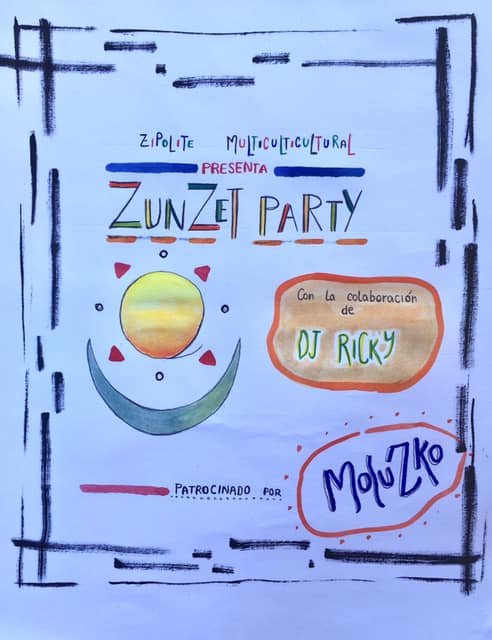 ZIPOLITE MULTICULTICULTURAL
PRESENTA
ZUNZET PARTY
Con la colaboración
de
DJ RICKY
PATROCINADO POR
MOlúZKO